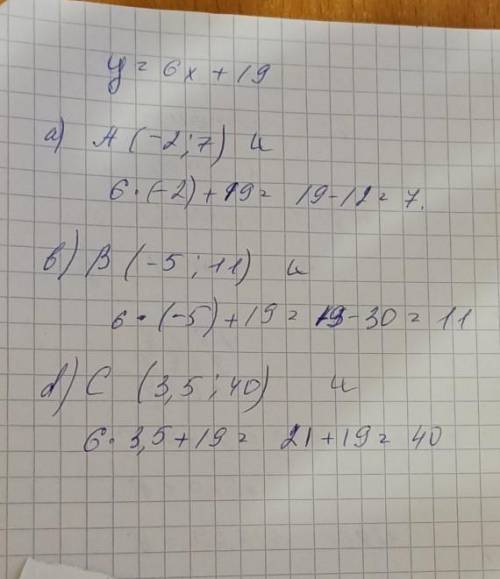 y = 6x + 19
а) A (-2; 7) и
6 · (-2) + 19 = 19 - 12 = 7.
в) B (-5; 11) и
6 · (-5) + 19 = 19 - 30 = 11
d) C (3,5; 40) и
6 · 3,5 + 19 = 21 + 19 = 40